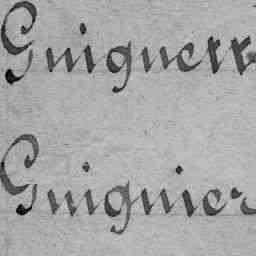 Guiguett
Guignier